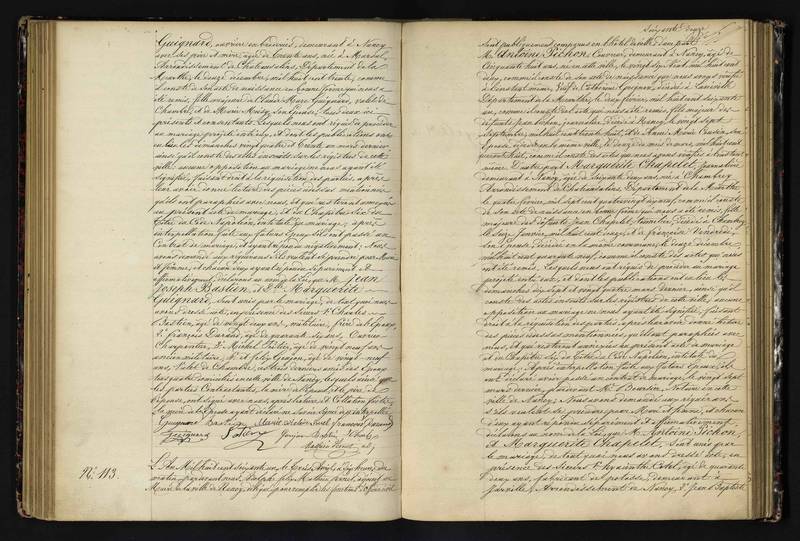 Guignard, ouvrière en broderies, demeurant à Nancy
avec ses père et mère, âgée de trente ans, née à Marsal,
Arrondissement de Château-Salins, Département de la
Meurthe, le douze décembre mil huit cent trente, comme
il conste de son acte de naissance en bonne forme qui nous a
été remis, fille majeure de Claude Marc Guignard, valet de
Chambre, et de Marie son Epouse, tous deux ici
présents et consentants. Lesquels nous ont requis de procéder
au mariage projeté entre eux, et dont les publications ont
eu lieu les dimanches vingt quatre et trente un mars dernier
ainsi qu'il conste des actes inscrits sur les registres de cette
ville; aucune opposition au mariage ne nous ayant été
signifiée, faisant droit à la réquisition des parties, après
leur avoir donné lecture des pièces ci-dessus mentionnées
qu'ils ont paraphées avec nous, et qui resteront annexées
au présent acte de mariage, et du Chapitre Six du
titre du Code Napoléon, intitulé du mariage; après
interpellation faite aux futurs Epoux s'ils ont passé un
Contrat de mariage, et ayant répondu négativement; Nous
avons demandé aux requérants s'ils veulent se prendre pour Mari
et femme, et chacun d'eux ayant répondu séparément et
affirmativement, déclarons au nom de la loi, que M. Jean
Joseph Bastien, et Dlle Marguerite
Guignard, sont unis par le mariage, de tout quoi nous
avons dressé acte, en présence des sieurs 1° Charles
Bastien, âgé de vingt cinq ans, militaire, frère de l'Epoux,
2° François Garnier, âgé de quarante six ans, Ouvrier
Charpentier, 3° Michel âgé de vingt neuf ans,
ancien militaire, 4° et Félix Goujon, âgé de vingt neuf
ans, Valet de Chambre, les trois derniers amis des Epoux
tous quatre domiciliés en cette ville de Nancy, lesquels ainsi que
les parties Contractantes, la mère de l'Epoux et le père de
l'Epouse, ont signé avec nous, après lecture et Collation faites,
la mère de l'Epouse ayant déclaré ne savoir signer de ce interpellée.
Guignard Bastien François Garnier
Guignard Goujon Bastien Charles
N°. 113.
L'An Mil huit cent soixante un, le trois Avril, à huit heures du
matin, pardevant nous Adolphe Félix Mathieu adjoint au
Maire de la ville de Nancy, délégué pour remplir les fonctions d'officier de l'état
soixante douze
civil publiquement comparus en l'hôtel de ville, d'une part
M. Antoine Pichon, Ouvrier, demeurant à Nancy, âgé de
cinquante huit ans, né en cette ville, le vingt six Août mil huit cent
deux, comme il conste de son acte de naissance que nous avons vérifié
à l'instant même, Veuf de Catherine Guignon, décédée à Laneuville
Département de la Meurthe, le deux février mil huit cent soixante
un, comme il conste de l'acte qui nous a été remis, fils majeur des
défunts Pichon, journalier, décédé à Nancy, le vingt sept
Septembre mil huit cent trente huit, et de Anne Marie son
Epouse, décédée en la même ville, le douze mars mil huit cent
quarante huit, comme il conste des actes que nous avons vérifiés à l'instant
même. D'autre part, Marguerite Chapelet, journalière
demeurant à Nancy, âgée de soixante deux ans, née à Chambrey
Arrondissement de Château-Salins, Département de la Meurthe,
le quatre février mil sept cent quatre vingt dix neuf, comme il conste
de son acte de naissance en bonne forme qui nous a été remis, fille
majeure des défunts Jean Chapelet, décédé à Chambrey
le seize février mil huit cent onze, et de Françoise
son Epouse, décédée en la même commune, le douze décembre
mil huit cent quarante neuf, comme il conste des actes qui nous
ont été remis. Lesquels nous ont requis de procéder au mariage
projeté entre eux, et dont les publications ont eu lieu les
dimanches dix sept et vingt quatre mars dernier, ainsi qu'il
conste des actes inscrits sur les registres de cette ville, aucune
opposition au mariage ne nous ayant été signifiée, faisant
droit à la réquisition des parties, après leur avoir donné lecture
des pièces ci-dessus mentionnées, qu'ils ont paraphées avec
nous, et qui resteront annexées au présent acte de mariage
et du Chapitre Six du titre du Code Napoléon, intitulé du
mariage; Après interpellation faite aux futurs Epoux, ils
ont déclaré avoir passé un contrat de mariage le vingt sept
mars dernier, pardevant Me Notaire en cette
ville de Nancy; Nous avons demandé aux requérants
s'ils veulent se prendre pour Mari et femme, et chacun
d'eux ayant répondu séparément et affirmativement
déclarons au nom de la loi, que M. Antoine Pichon,
et Marguerite Chapelet, sont unis par
le mariage, de tout quoi nous avons dressé acte, en
présence des Sieurs 1° Hyacinthe âgé de quarante
deux ans, fabricant de potasse, demeurant à
Jarville, Arrondissement de Nancy, 2° Jean Baptiste